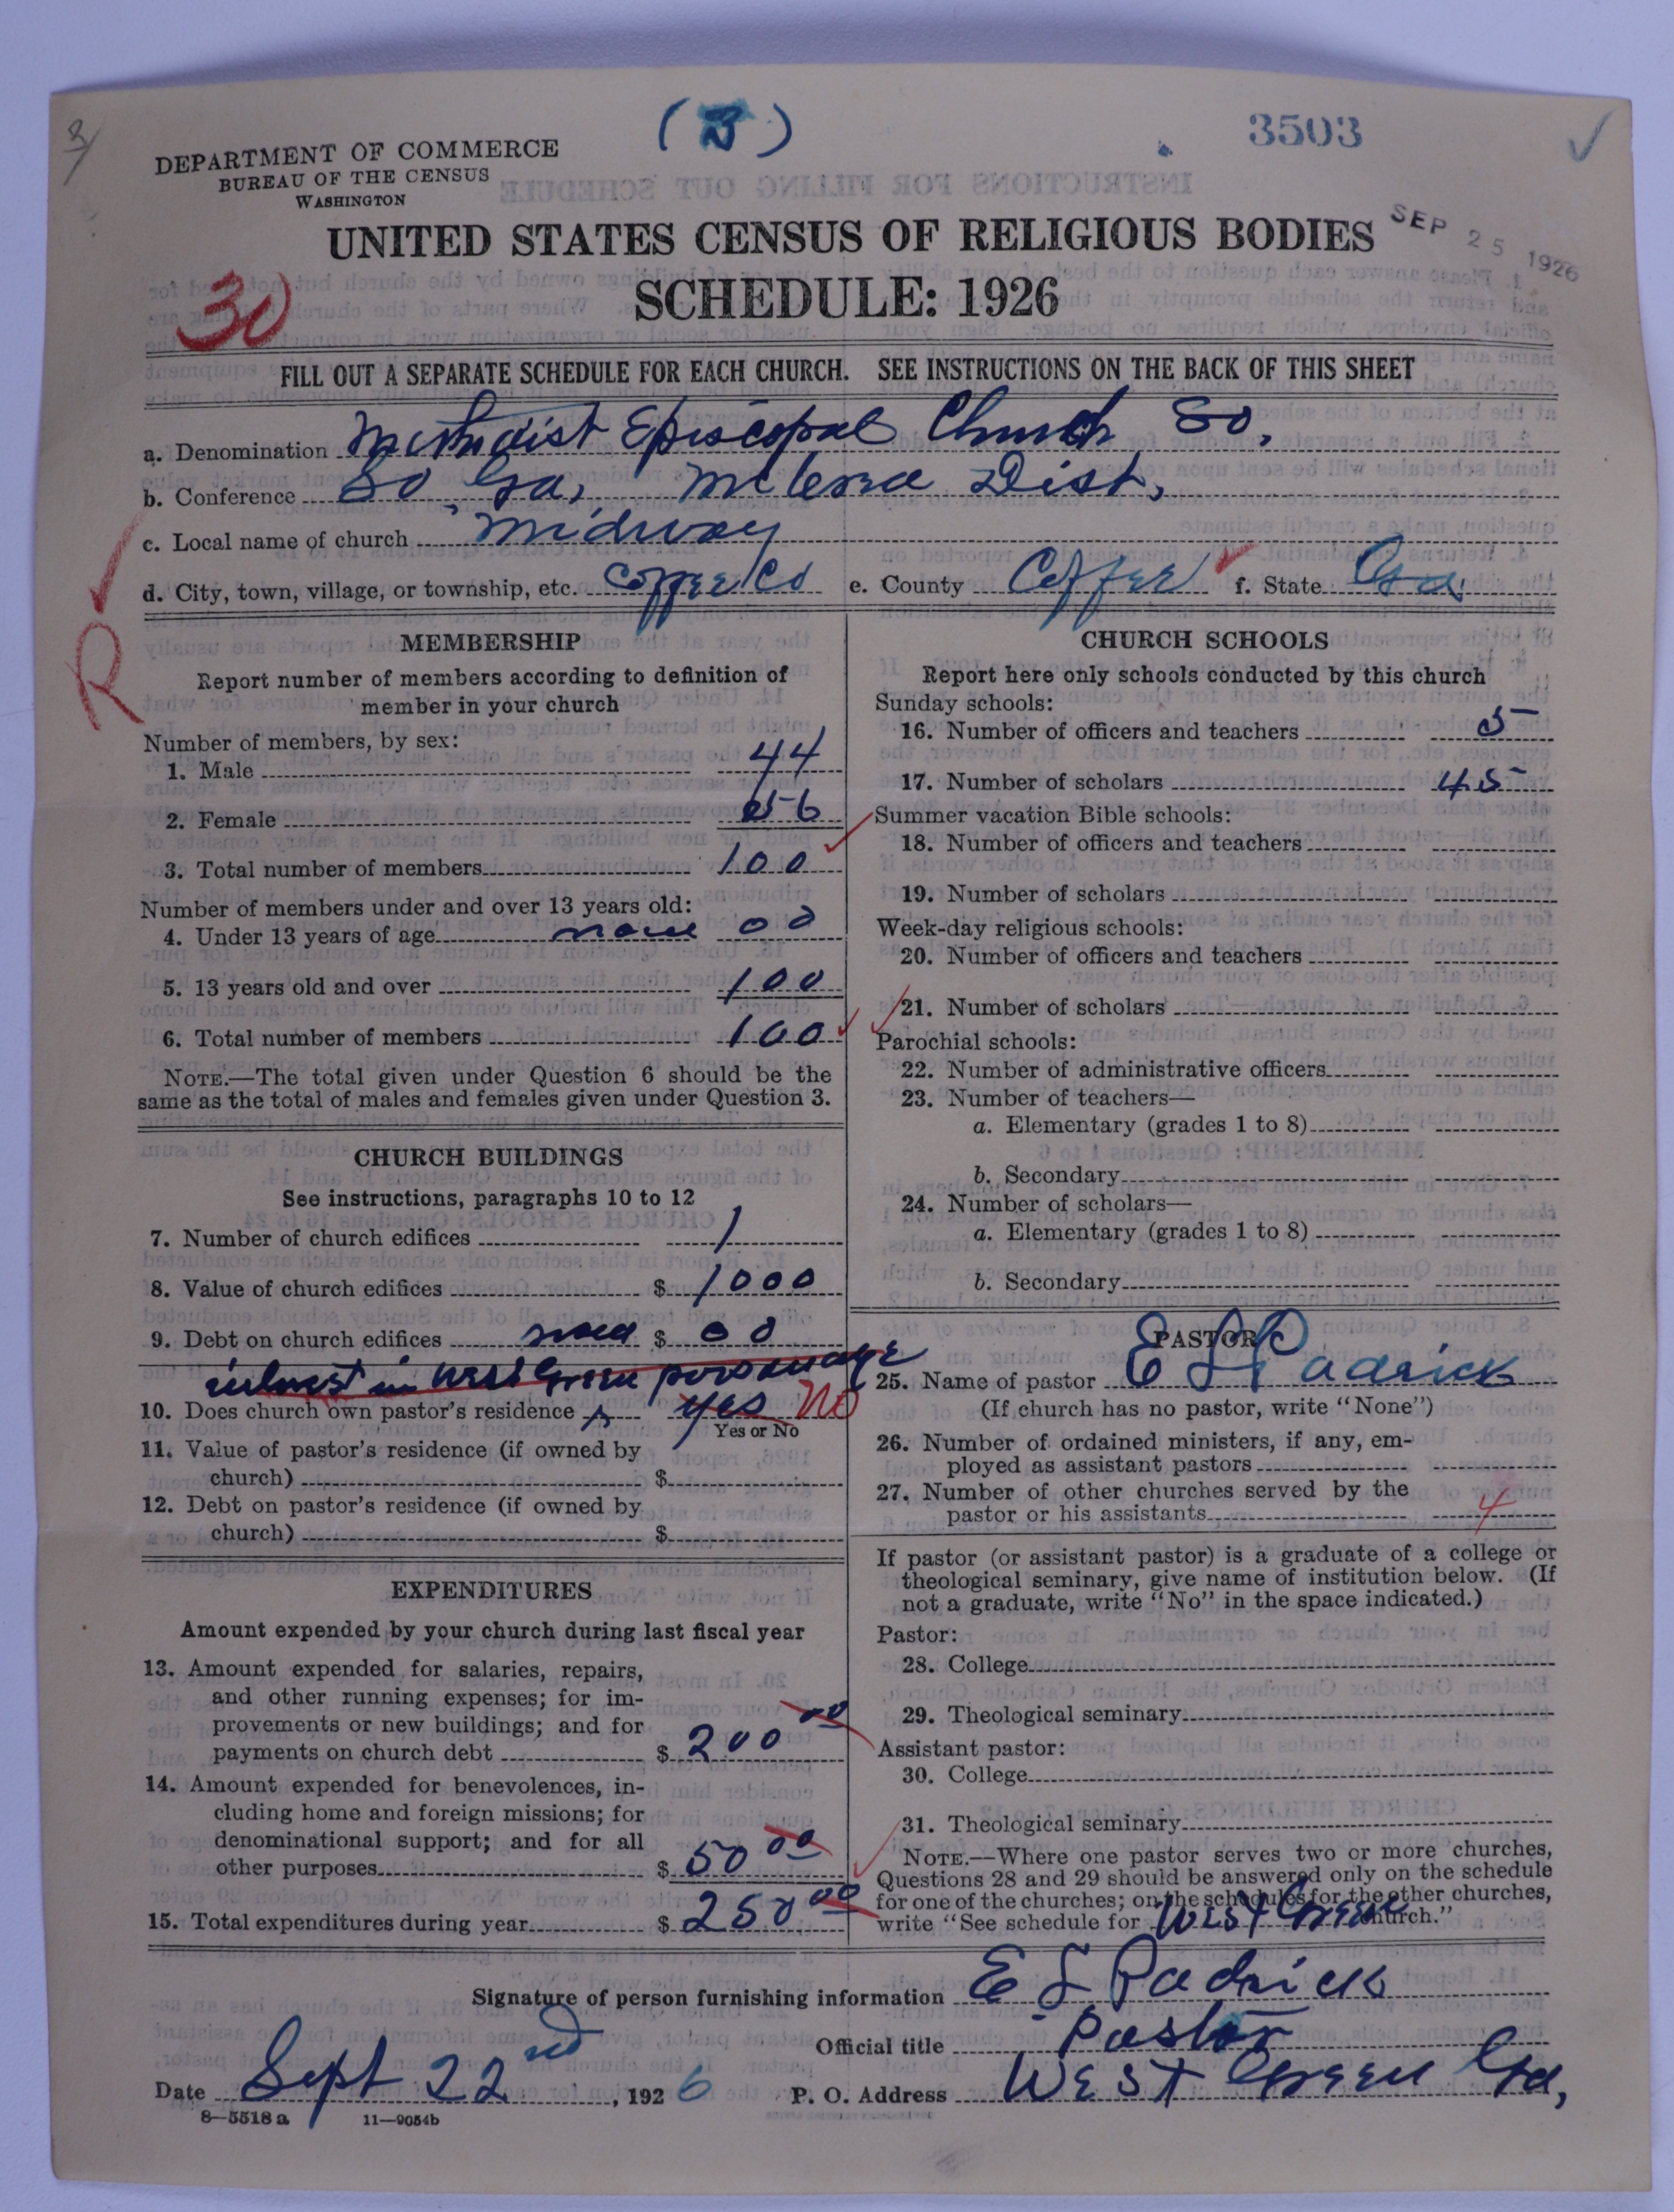 3/
(3)
3503
DEPARTMENT OF COMMERCE
BUREAU OF THE CENSUS
WASHINGTON
UNITED STATES CENSUS OF RELIGIOUS BODIES
SEP 25 1926
SCHEDULE: 1926
30
FILL OUT A SEPARATE SCHEDULE FOR EACH CHURCH. SEE INSTRUCTIONS ON THE BACK OF THIS SHEET
a. Denomination Methodist Episcopal Church So.
b. Conference So Ga, McCrae Dist,
c. Local name of church Midway
d. City, town, village, or township, etc. Coffee Co e. County Coffee f. State Ga.
R
MEMBERSHIP
Report number of members according to definition of
member in your church
Number of members, by sex:
1. Male 44
2. Female 56
3. Total number of members 100
Number of members under and over 13 years old:
4. Under 13 years of age none 00
5. 13 years old and over 100
6. Total number of members 100
NOTE.—The total given under Question 6 should be the
same as the total of males and females given under Question 3.
CHURCH BUILDINGS
See instructions, paragraphs 10 to 12
7. Number of church edifices 1
8. Value of church edifices $ 1000
9. Debt on church edifices $ 00
intrest in West Green parsonage
10. Does church own pastor's residence Yes No
Yes or No
11. Value of pastor's residence (if owned by
church) $
12. Debt on pastor's residence (if owned by
church) $
EXPENDITURES
Amount expended by your church during last fiscal year
13. Amount expended for salaries, repairs,
and other running expenses; for im-
provements or new buildings; and for
payments on church debt $ 200 00
14. Amount expended for benevolences, in-
cluding home and foreign missions; for
denominational support; and for all
other purposes $ 50 00
15. Total expenditures during year $ 250 00
CHURCH SCHOOLS
Report here only schools conducted by this church
Sunday schools:
16. Number of officers and teachers 5
17. Number of scholars 45
Summer vacation Bible schools:
18. Number of officers and teachers
19. Number of scholars
Week-day religious schools:
20. Number of officers and teachers
21. Number of scholars
Parochial schools:
22. Number of administrative officers
23. Number of teachers—
a. Elementary (grades 1 to 8)
b. Secondary
24. Number of scholars—
a. Elementary (grades 1 to 8)
b. Secondary
PASTOR
25. Name of pastor E L Padrick
(If church has no pastor, write "None")
26. Number of ordained ministers, if any, em-
ployed as assistant pastors
27. Number of other churches served by the
pastor or his assistants 4
If pastor (or assistant pastor) is a graduate of a college or
theological seminary, give name of institution below. (If
not a graduate, write "No" in the space indicated.)
Pastor:
28. College
29. Theological seminary
Assistant pastor:
30. College
31. Theological seminary
NOTE.—Where one pastor serves two or more churches,
Questions 28 and 29 should be answered only on the schedule
for one of the churches; on the schedules for the other churches,
write "See schedule for West Green church."
Signature of person furnishing information E L Padrick
Official title Pastor
Date Sept 22nd, 1926 P. O. Address West Green Ga,
8—5518 a 11—9054b